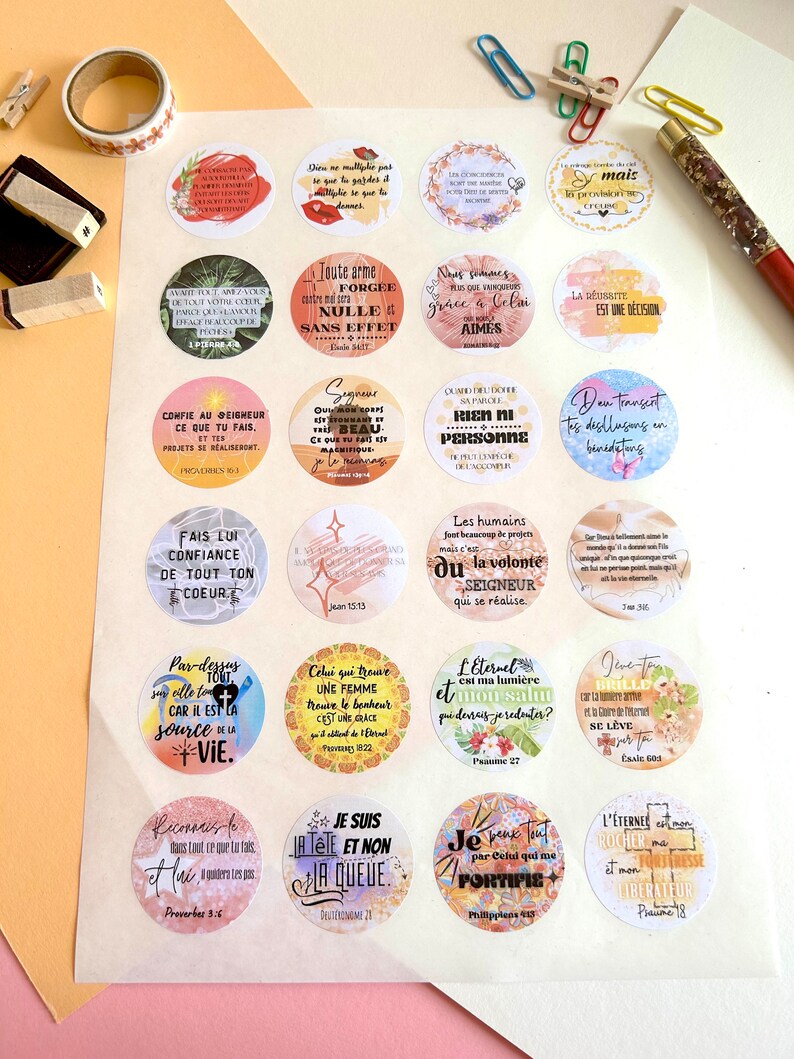 JE CONSACRE PAS
AUJOURD'HUI À
PLANIFIER DEMAIN EN
FUYANT LES DÉFIS
QUI SONT DEVANT
TOI MAINTENANT.
Dieu ne multiplie pas
se que tu gardes il
multiplie se que tu
donnes.
LES COINCIDENCES
SONT UNE MANIÈRE
POUR DIEU DE RESTER
ANONYME.
Le mirage tombe du ciel
mais
la provision se
creuse
AVANT TOUT, AIMEZ-VOUS
DE TOUT VOTRE CŒUR,
PARCE QUE « L'AMOUR
EFFACE BEAUCOUP DE
PÉCHÉS »
1 PIERRE 4:8
Toute arme
FORGÉE
contre moi sera
NULLE et
SANS EFFET
Ésaïe 54:17
Nous sommes
PLUS QUE VAINQUEURS
grâce à Celui
QUI NOUS A
AIMÉS
ROMAINS 8:37
LA RÉUSSITE
EST UNE DÉCISION.
CONFIE AU SEIGNEUR
CE QUE TU FAIS,
ET TES
PROJETS SE RÉALISERONT.
PROVERBES 16:3
Seigneur
OUI, MON CORPS
EST ÉTONNANT ET
TRÈS BEAU.
CE QUE TU FAIS EST
MAGNIFIQUE,
je le reconnais.
Psaumes 139:14
QUAND DIEU DONNE
SA PAROLE
RIEN NI
PERSONNE
NE PEUT L'EMPÊCHE
DE L'ACCOMPLIR
Dieu transcrit
tes désillusions en
bénédictions
FAIS LUI
CONFIANCE
DE TOUT TON
COEUR.
IL N'Y A PAS DE PLUS GRAND
AMOUR QUE DE DONNER SA
VIE POUR SES AMIS.
Jean 15:13
Les humains
font beaucoup de projets
mais c'est
du la volonté
SEIGNEUR
qui se réalise.
Car Dieu a tellement aimé le
monde qu'il a donné son Fils
unique, afin que quiconque croit
en lui ne périsse point, mais qu'il
ait la vie éternelle.
Jean 3:16
Par-dessus
TOUT,
sur veille ton
CAR IL EST LA
source DE LA
VIE.
Celui qui trouve
UNE FEMME
trouve le bonheur
C'EST UNE GRÂCE
qu'il obtient de l'Eternel
PROVERBES 18:22
L'Éternel
est ma lumière
et mon salut
qui devrais-je redouter?
Psaume 27
Lève-toi
BRILLE
car ta lumière arrive
et la Gloire de l'éternel
SE LÈVE
sur toi
Ésaïe 60:1
Reconnais-le
dans tout ce que tu fais,
et lui, il guidera tes pas.
Proverbes 3:6
JE SUIS
LA TÊTE ET NON
LA QUEUE.
DEUTÉRONOME 28
Je peux tout
par Celui qui me
FORTIFIE
Philippiens 4:13
L'ÉTERNEL est mon
ROCHER ma
FORTERESSE
et mon
LIBÉRATEUR
Psaume 18
#
#